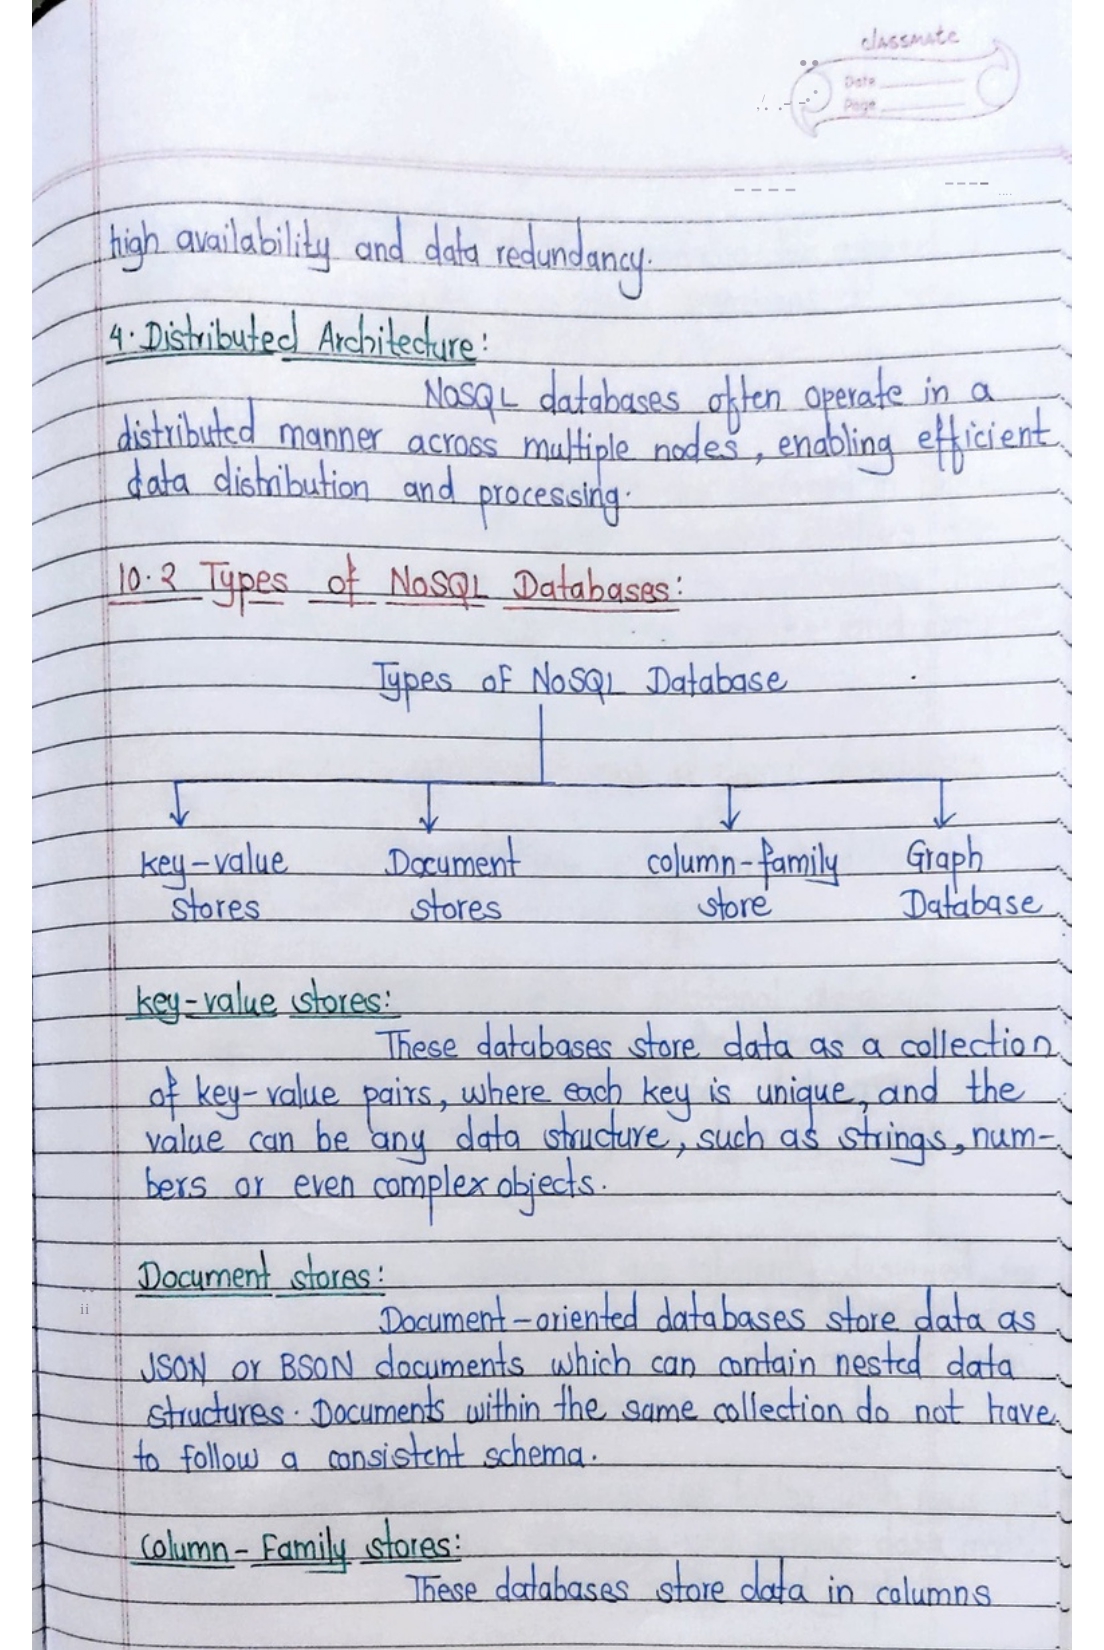 classmate
Date
Page
high availability and data redundancy.
4. Distributed Architecture:
NoSQL databases often operate in a
distributed manner across multiple nodes, enabling efficient
data distribution and processing.
10.2 Types of NoSQL Databases:
Types of NoSQL Database
key-value Document column-family Graph
stores stores store Database
key-value stores:
These databases store data as a collection
of key-value pairs, where each key is unique, and the
value can be any data structure, such as strings, num-
bers or even complex objects.
Document stores:
ii
Document-oriented databases store data as
JSON or BSON documents which can contain nested data
structures. Documents within the same collection do not have
to follow a consistent schema.
Column-Family stores:
These databases store data in columns